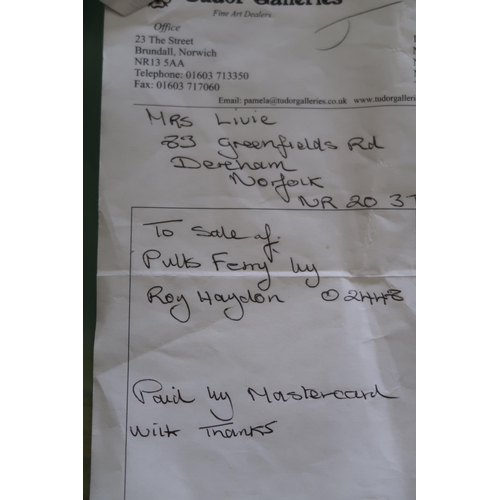 Tudor Galleries
Fine Art Dealers
Office
23 The Street
Brundall, Norwich
NR13 5AA
Telephone: 01603 713350
Fax: 01603 717060
Email: pamela@tudorgalleries.co.uk www.tudorgallerie
Mrs Livie
83 Greenfields Rd
Dereham
Norfolk
NR 20 3T
To Sale of.
Pulls Ferry by
Roy Haydon 02448
Paid by Mastercard
With Thanks